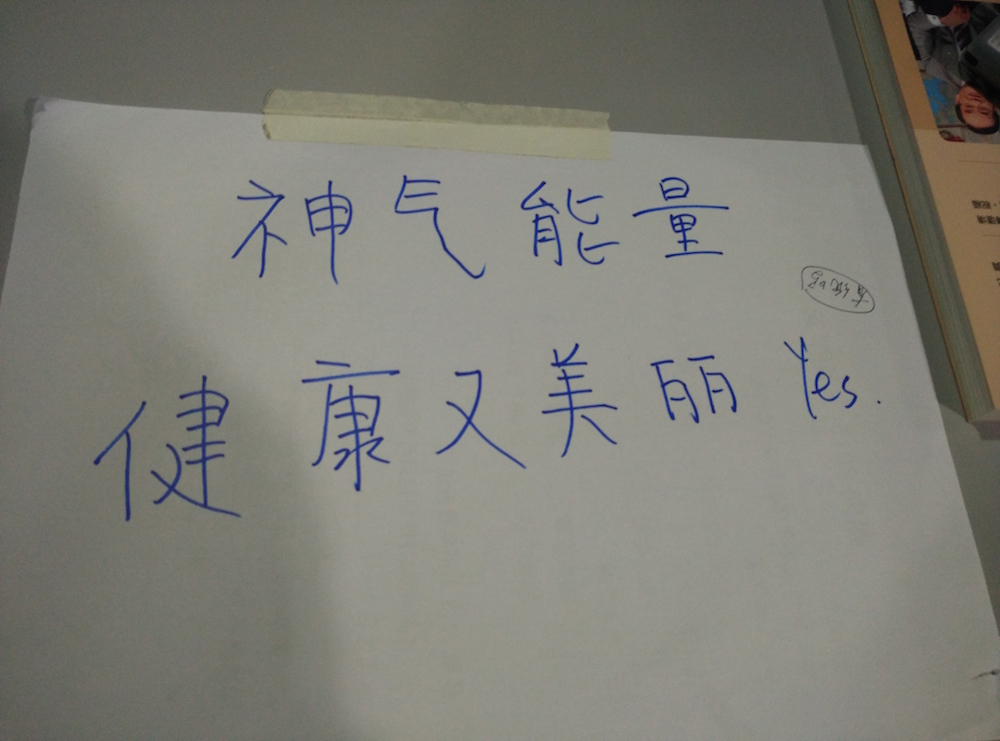 神气能量
健康又美丽 Yes.